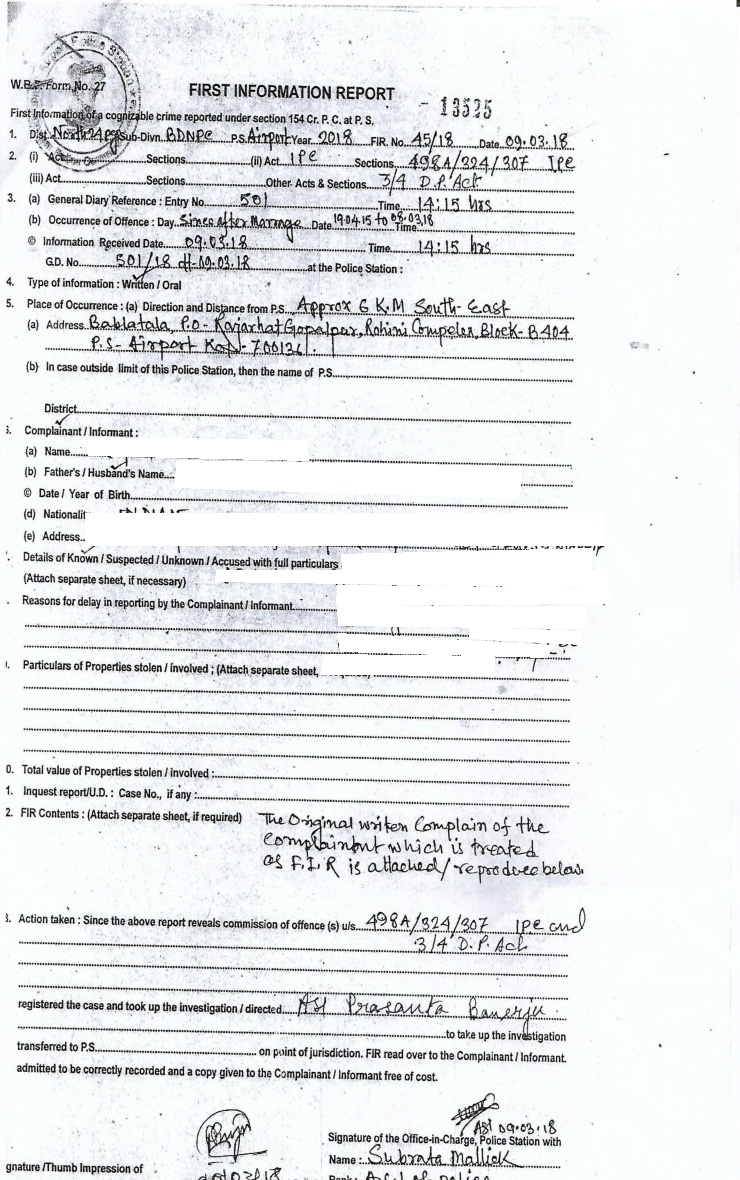 W.B.F. Form No. 27
FIRST INFORMATION REPORT
- 13525
First Information of a cognizable crime reported under section 154 Cr. P. C. at P. S.
1. Dist. North 24 pgs Sub-Divn. BDNPC P.S. Airport Year 2018 FIR. No. 45/18 Date 09.03.18
2. (i) Act Sections (ii) Act IPC Sections 498A/324/307 IPC
(iii) Act Sections Other Acts & Sections 3/4 D.P. Act
3. (a) General Diary Reference : Entry No. 501 Time 14:15 hrs
(b) Occurrence of Offence : Day Since after Marriage Date 19.04.15 to 08.03.18 Time
© Information Received Date 09.03.18 Time 14:15 hrs
G.D. No. 501/18 dt-09.03.18 at the Police Station :
4. Type of information : Written / Oral
5. Place of Occurrence : (a) Direction and Distance from P.S. Approx 6 K.M South-East
(a) Address Bablatala, P.O- Rajarhat Gopalpur, Rohini Compelex, Block-B 404
P.S- Airport Kol- 700136.
(b) In case outside limit of this Police Station, then the name of P.S.
District
Complainant / Informant :
(a) Name
(b) Father's / Husband's Name
© Date / Year of Birth
(d) Nationalit
(e) Address
Details of Known / Suspected / Unknown / Accused with full particulars
(Attach separate sheet, if necessary)
Reasons for delay in reporting by the Complainant / Informant
Particulars of Properties stolen / involved ; (Attach separate sheet,
0. Total value of Properties stolen / involved :
1. Inquest report/U.D. : Case No., if any :
2. FIR Contents : (Attach separate sheet, if required) The Original writen Complain of the
Complainant which is treated
as F.I.R is attached/ reproduce below.
3. Action taken : Since the above report reveals commission of offence (s) u/s. 498A/324/307 IPC and
3/4 D.P. Act
registered the case and took up the investigation / directed ASI Prasanta Banerjee
to take up the investigation
transferred to P.S. on point of jurisdiction. FIR read over to the Complainant / Informant.
admitted to be correctly recorded and a copy given to the Complainant / Informant free of cost.
ASI 09.03.18
Signature of the Office-in-Charge, Police Station with
Name : Subrata Mallick
gnature /Thumb Impression of